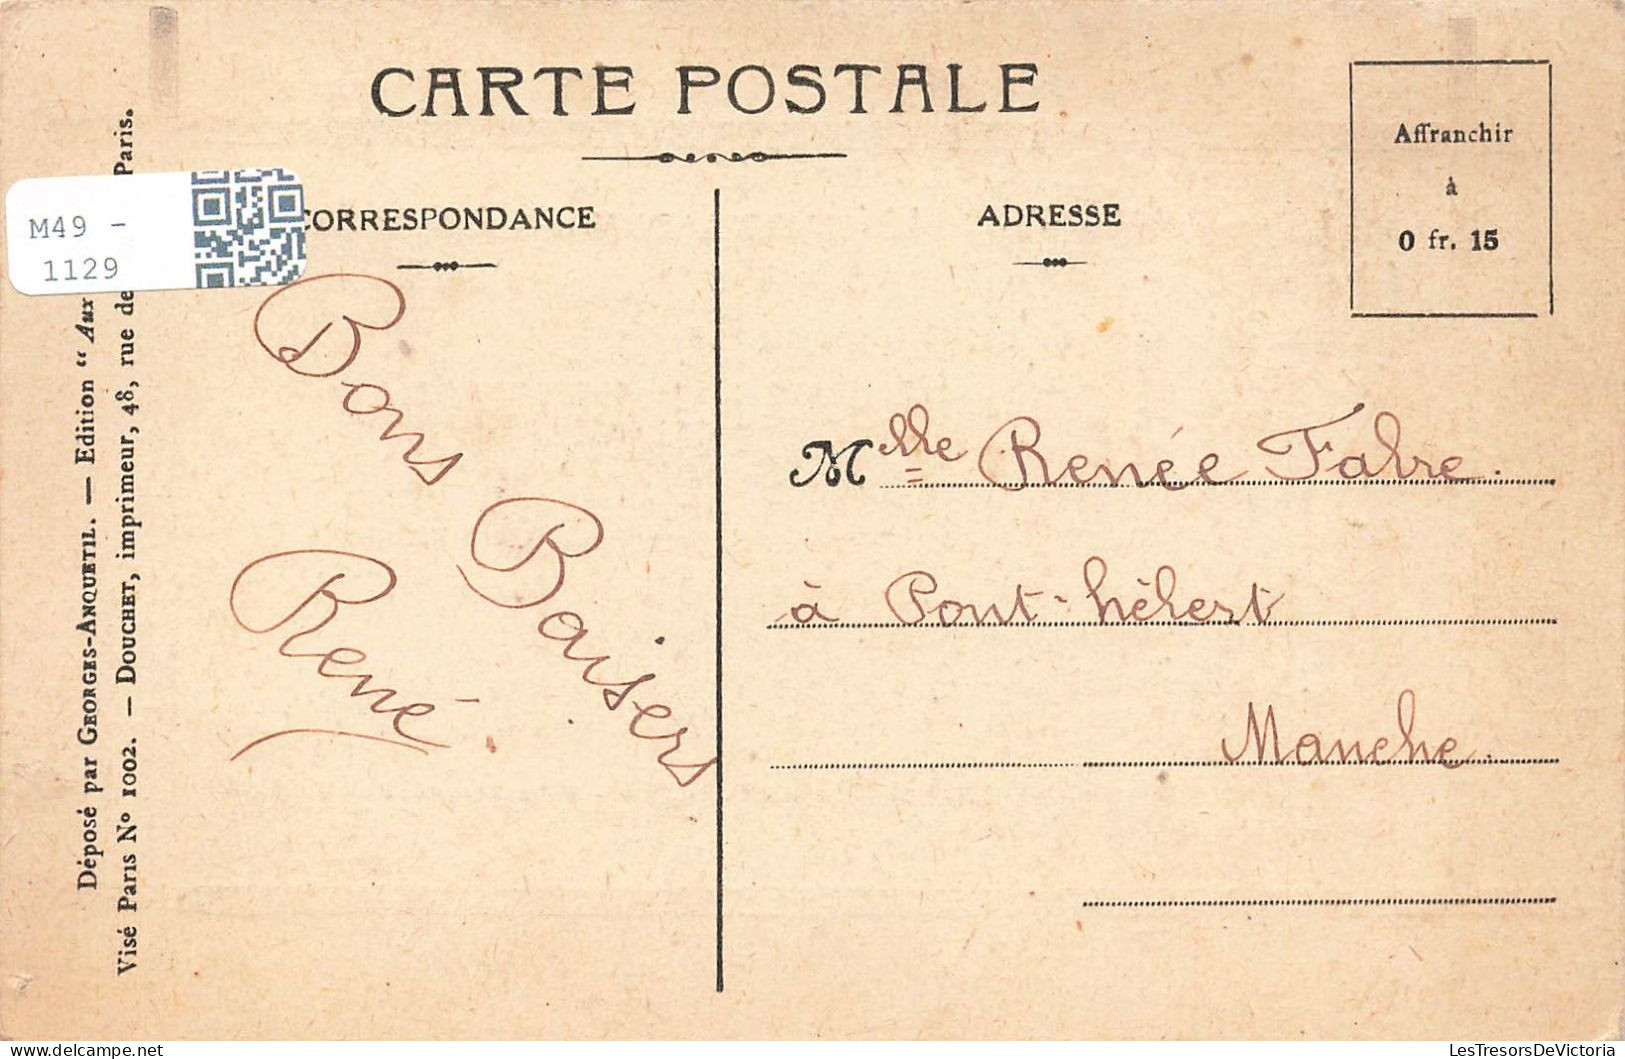 CARTE POSTALE
CORRESPONDANCE
ADRESSE
Affranchir
à
0 fr. 15
M49 -
1129
Déposé par GEORGES-ANQUETIL. — Edition “ Aux
Visé Paris N° 1002. — DOUCHET, imprimeur, 48, rue de
Paris.
Bons Baisers
René
Mlle Renée Fabre.
à Pont-hébert
Manche.
LesTresorsDeVictoria